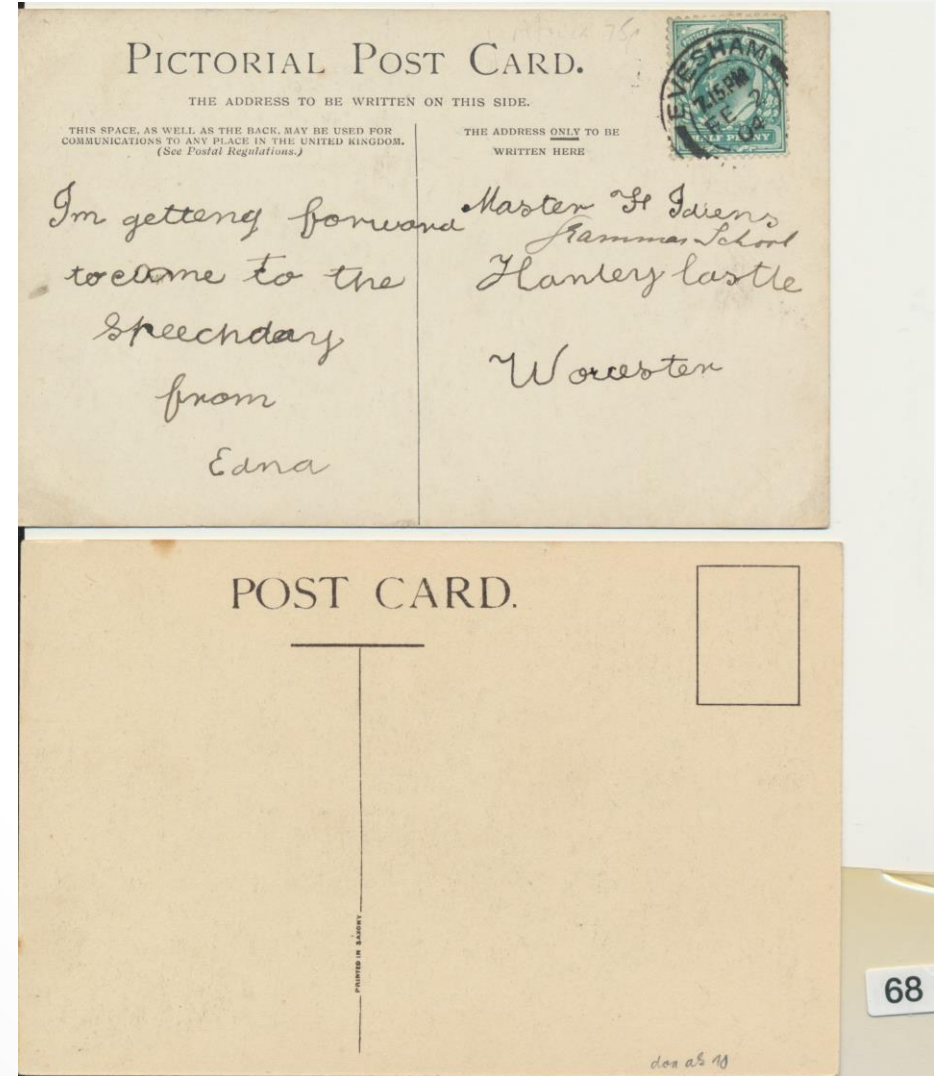 PICTORIAL POST CARD.
THE ADDRESS TO BE WRITTEN ON THIS SIDE.
THIS SPACE, AS WELL AS THE BACK, MAY BE USED FOR
COMMUNICATIONS TO ANY PLACE IN THE UNITED KINGDOM.
(See Postal Regulations.)
THE ADDRESS ONLY TO BE
WRITTEN HERE
EVESHAM
7.15.PM
FE 2
04
HALF PENNY
Im getteng forward
to come to the
Speechday
from
Edna
Master H Idiens
Grammar School
Hanley Castle
Worcester
POST CARD.
PRINTED IN SAXONY
68